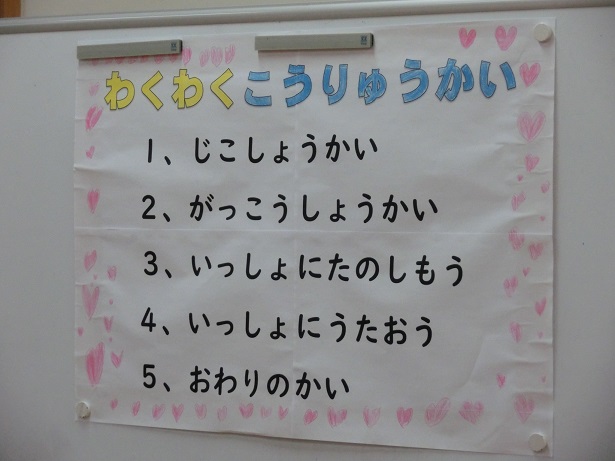 わくわくこうりゅうかい
1、じこしょうかい
2、がっこうしょうかい
3、いっしょにたのしもう
4、いっしょにうたおう
5、おわりのかい